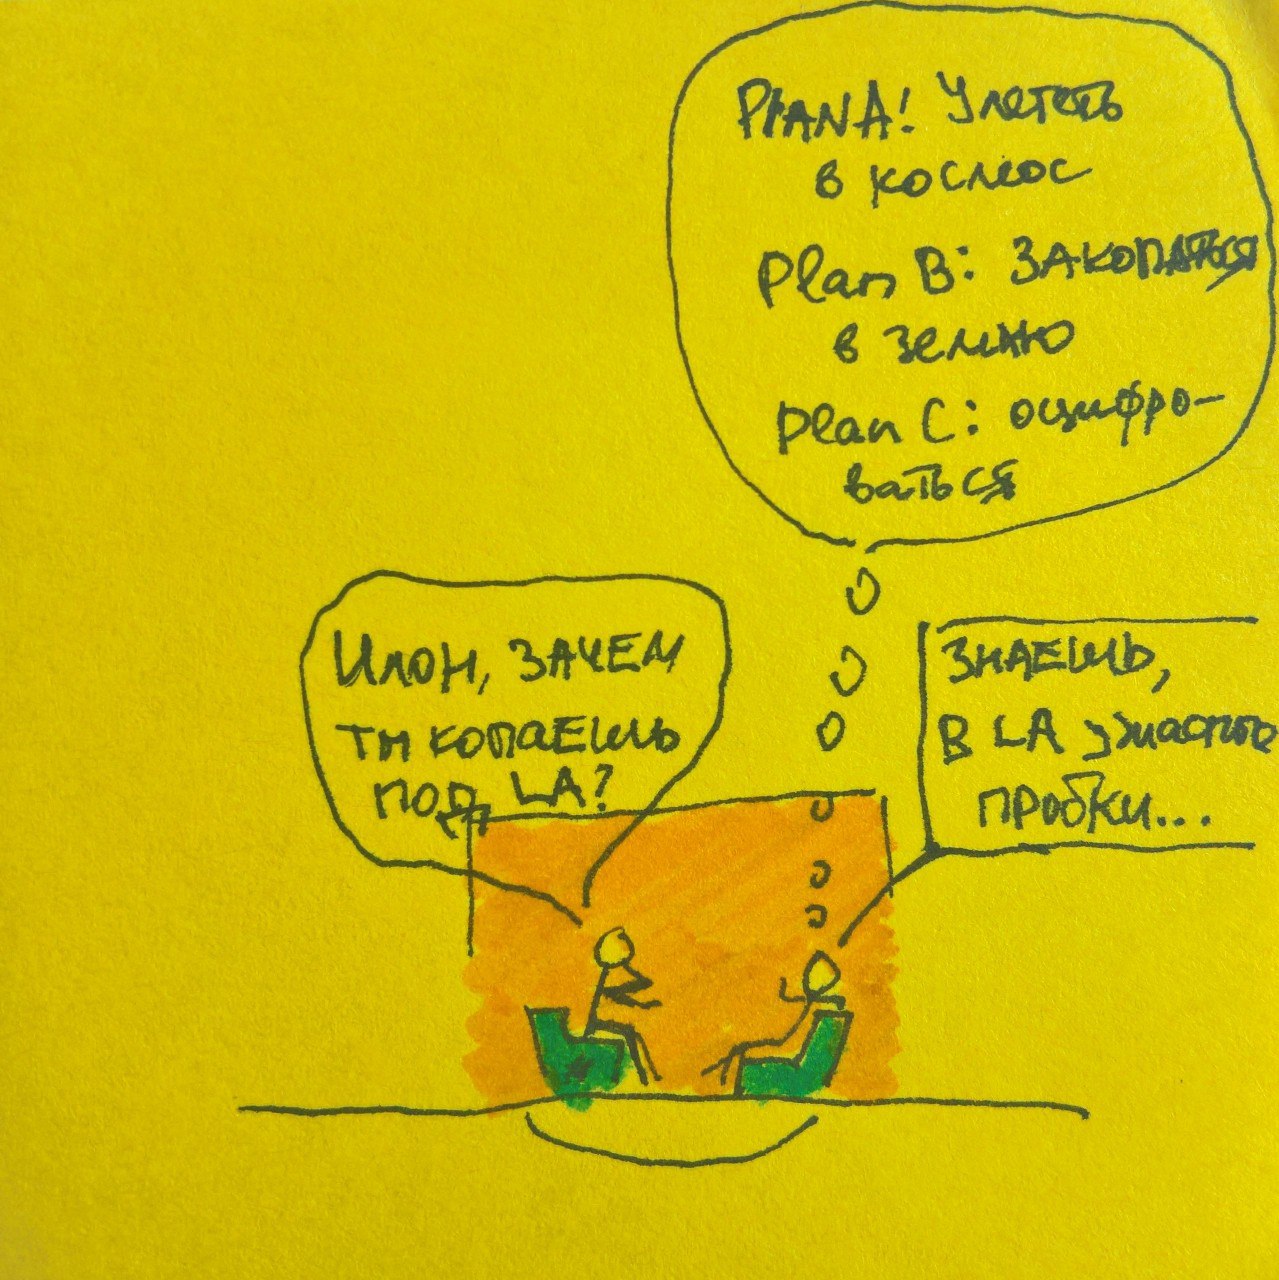 PlANA! Улететь
в космос
Plan B: ЗАКОПАТЬСЯ
в землю
Plan C: оцифро-
ваться
Илон, ЗАЧЕМ
ТЫ КОПАЕШЬ
ПОД LA?
ЗНАЕШЬ,
В LA ужасные
ПРОБКИ...